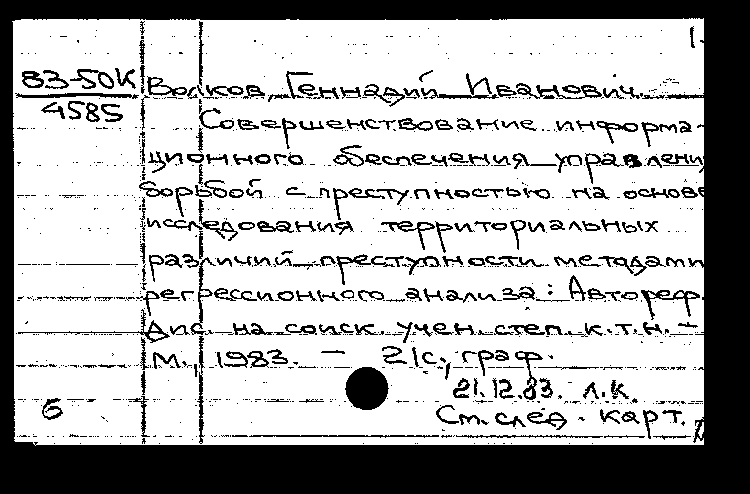 1.
83-50К Волков, Геннадий Иванович.
4585
Совершенствование информа-
ционного обеспечения управлени
борьбой с преступностью на основе
исследования территориальных
различий преступности методами
регрессионного анализа: Автореф.
дис. на соиск. учен. степ. к.т.н. -
М., 1983. - 21с., граф.
21.12.83. Л.К.
б См. след. карт.